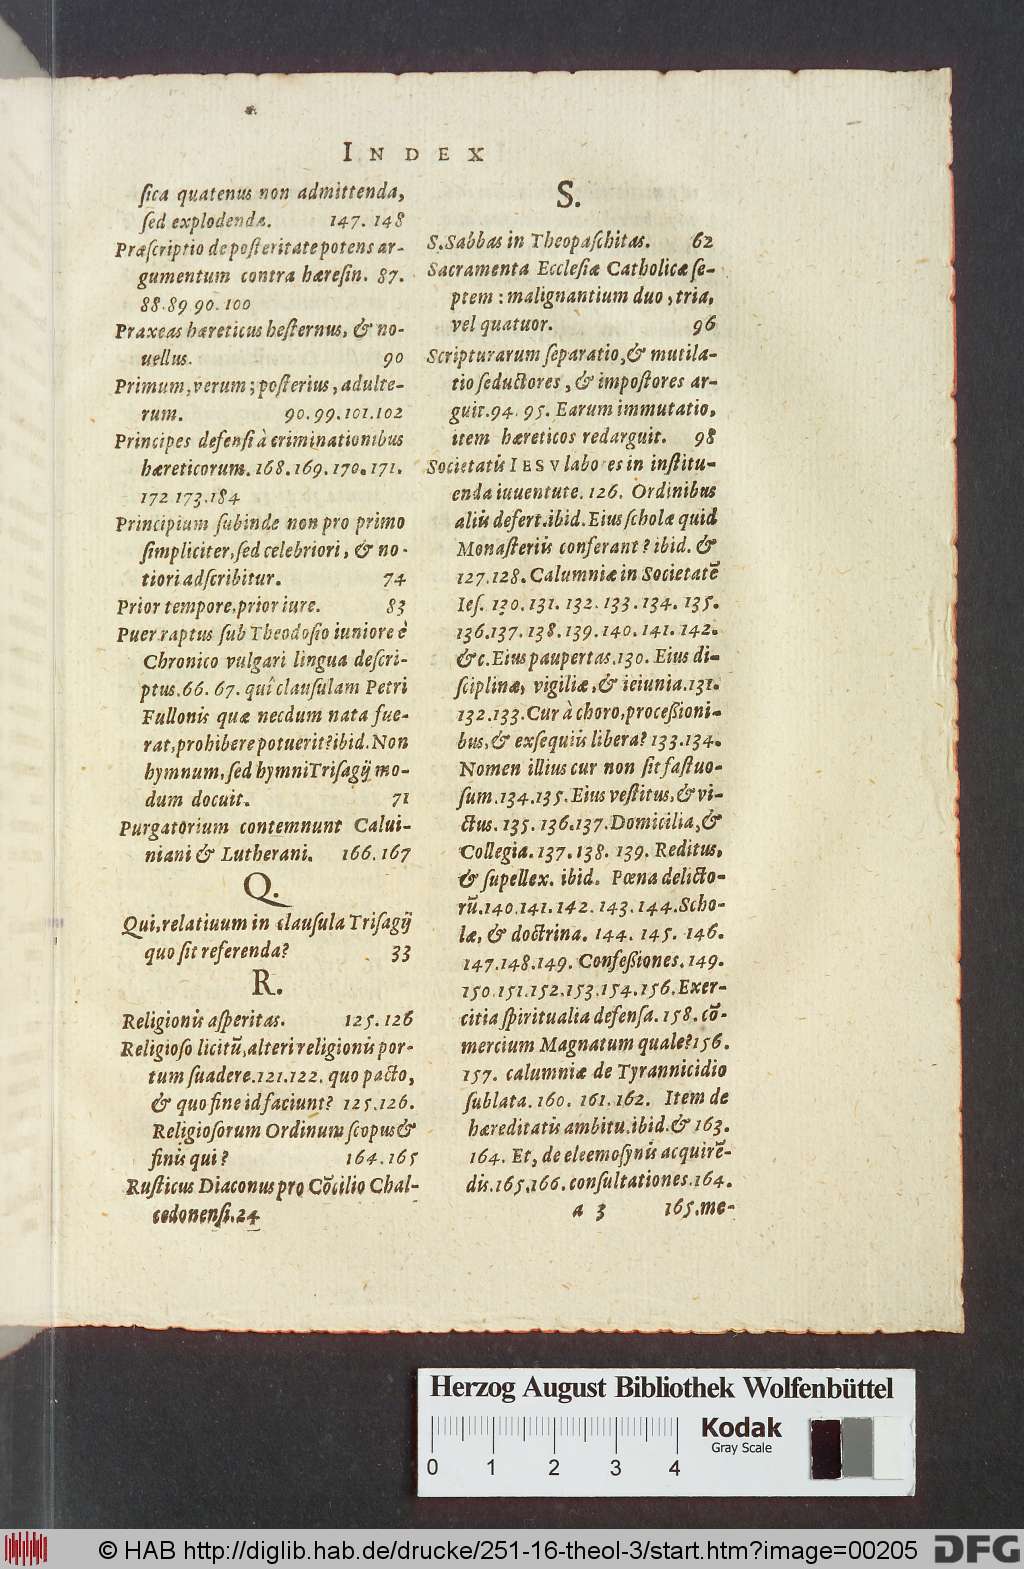 INDEX
ſica quatenus non admittenda,
ſed explodendæ. 147. 148
Præſcriptio de poſteritate potens ar-
gumentum contra hæreſin. 87.
88.89 90.100
Praxeas hæreticus heſternus, & no-
uellus. 90
Primum, verum; poſterius, adulte-
rum. 90.99.101.102
Principes defenſi à criminationibus
hæreticorum.168.169.170.171.
172 173.184
Principium ſubinde non pro primo
ſimpliciter, ſed celebriori, & no-
tiori adſcribitur. 74
Prior tempore, prior iure. 83
Puer raptus ſub Theodoſio iuniore è
Chronico vulgari lingua deſcri-
ptus.66.67. quî clauſulam Petri
Fullonis quæ necdum nata fue-
rat, prohibere potuerit? ibid. Non
hymnum, ſed hymni Triſagij mo-
dum docuit. 71
Purgatorium contemnunt Calui-
niani & Lutherani. 166.167
Q.
Qui, relatiuum in clauſula Triſagij
quo ſit referenda? 33
R.
Religionis aſperitas. 125.126
Religioſo licitū, alteri religionis por-
tum ſuadere.121.122. quo pacto,
& quo fine id faciunt? 125.126.
Religioſorum Ordinum ſcopus &
finis qui? 164.165
Ruſticus Diaconus pro Cōcilio Chal-
cedonenſi.24
S.
S. Sabbas in Theopaſchitas. 62
Sacramenta Eccleſiæ Catholicæ ſe-
ptem: malignantium duo, tria,
vel quatuor. 96
Scripturarum ſeparatio, & mutila-
tio ſeductores, & impoſtores ar-
guit.94.95. Earum immutatio,
item hæreticos redarguit. 98
Societatis IESV labores in inſtitu-
enda iuuentute.126. Ordinibus
aliis defert.ibid. Eius ſcholæ quid
Monaſteriis conferant? ibid. &
127.128. Calumniæ in Societatē
Ieſ. 130.131.132.133.134.135.
136.137.138.139.140.141.142.
&c. Eius paupertas.130. Eius di-
ſciplinæ, vigiliæ, & ieiunia.131.
132.133. Cur à choro, proceßioni-
bus, & exſequiis libera? 133.134.
Nomen illius cur non ſit faſtuo-
ſum.134.135. Eius veſtitus, & vi-
ctus.135.136.137. Domicilia, &
Collegia.137.138.139. Reditus,
& ſupellex. ibid. Pœna delicto-
rū.140.141.142.143.144. Scho-
læ, & doctrina. 144.145.146.
147.148.149. Confeßiones.149.
150.151.152.153.154.156. Exer-
citia ſpiritualia defenſa.158. cō-
mercium Magnatum quale? 156.
157. calumniæ de Tyrannicidio
ſublata.160.161.162. Item de
hæreditatis ambitu.ibid. & 163.
164. Et, de eleemoſynis acquirē-
dis.165.166. conſultationes.164.
a 3 165.me-
Herzog August Bibliothek Wolfenbüttel
Kodak
Gray Scale
0 1 2 3 4
© HAB http://diglib.hab.de/drucke/251-16-theol-3/start.htm?image=00205
DFG